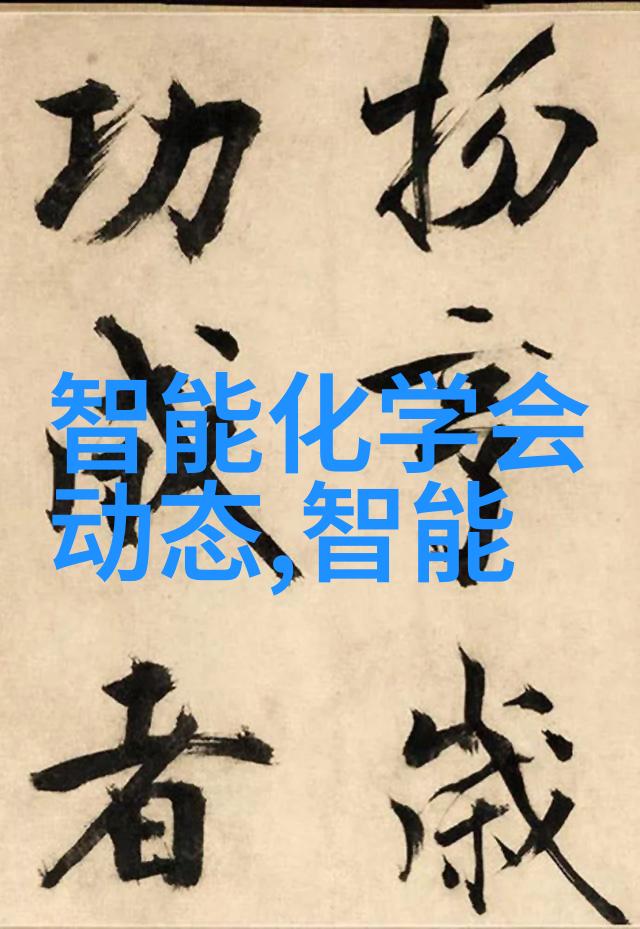 智能化学会
动态,智能
歲
功
者